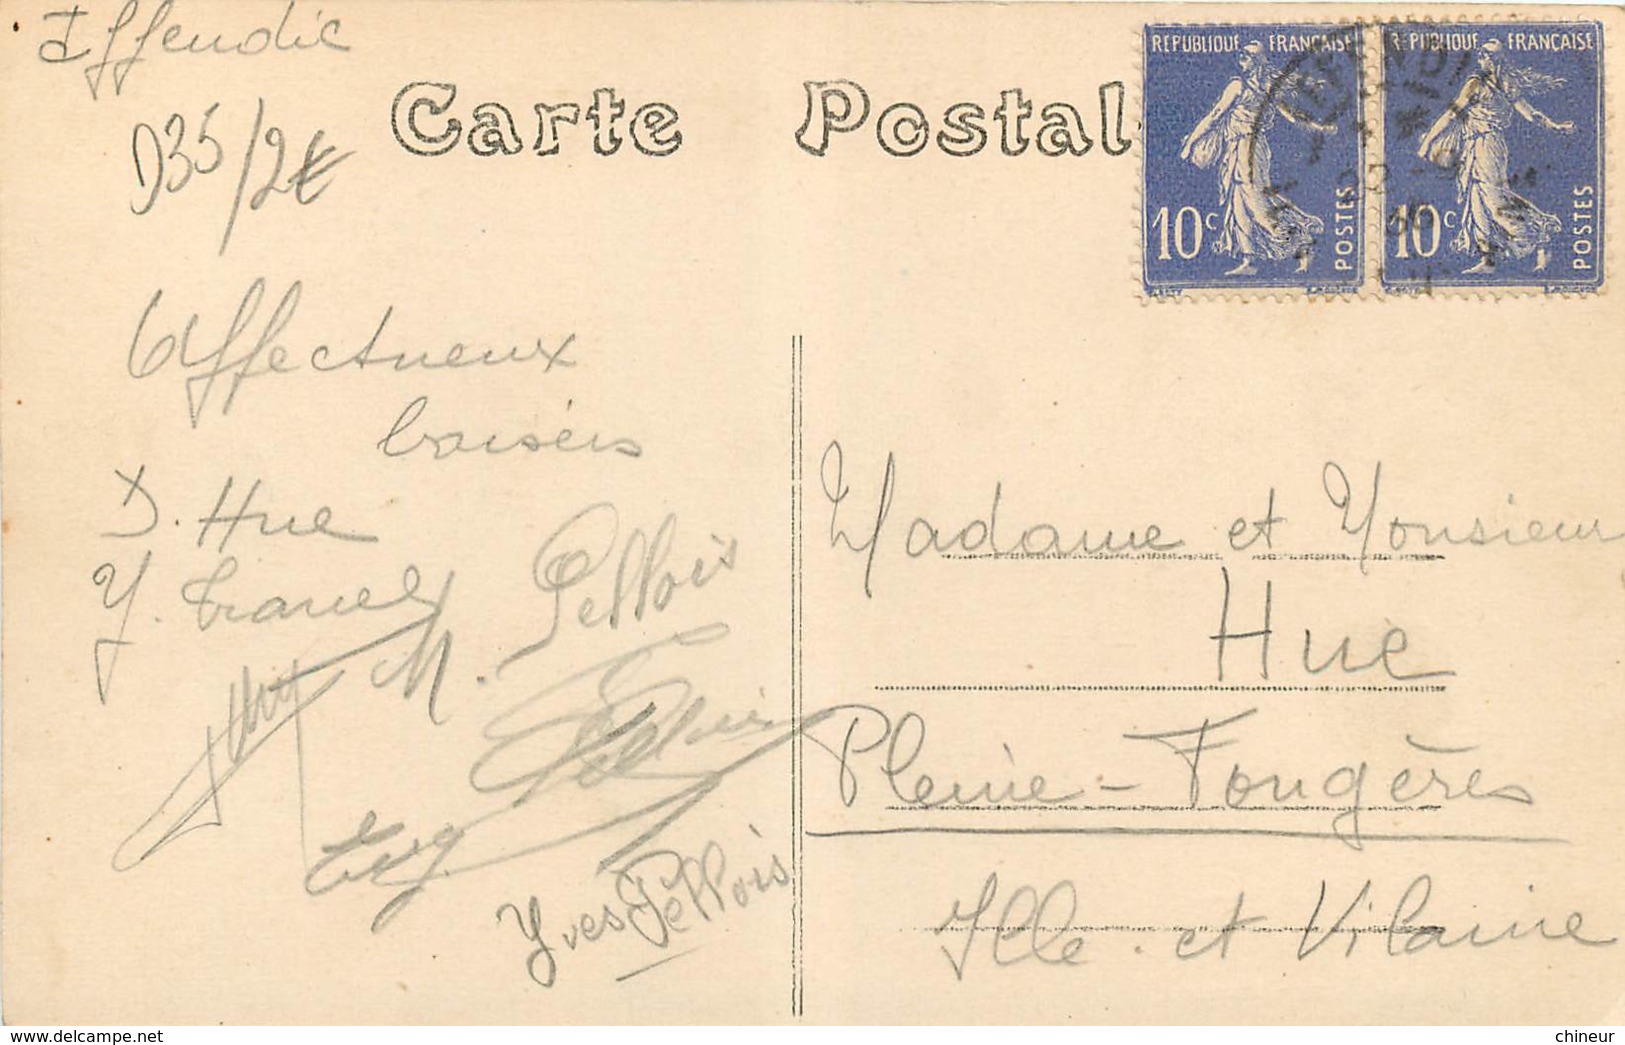 Iffendic
Carte Postal
D35/2€
REPUBLIQUE FRANÇAISE
10c
POSTES
REPUBLIQUE FRANÇAISE
10c
POSTES
Affectueux
baisers
D. Hue
M. Pellois
Yves Pellois
Madame et Monsieur
Hue
Pleine-Fougères
Ille-et Vilaine
chineur